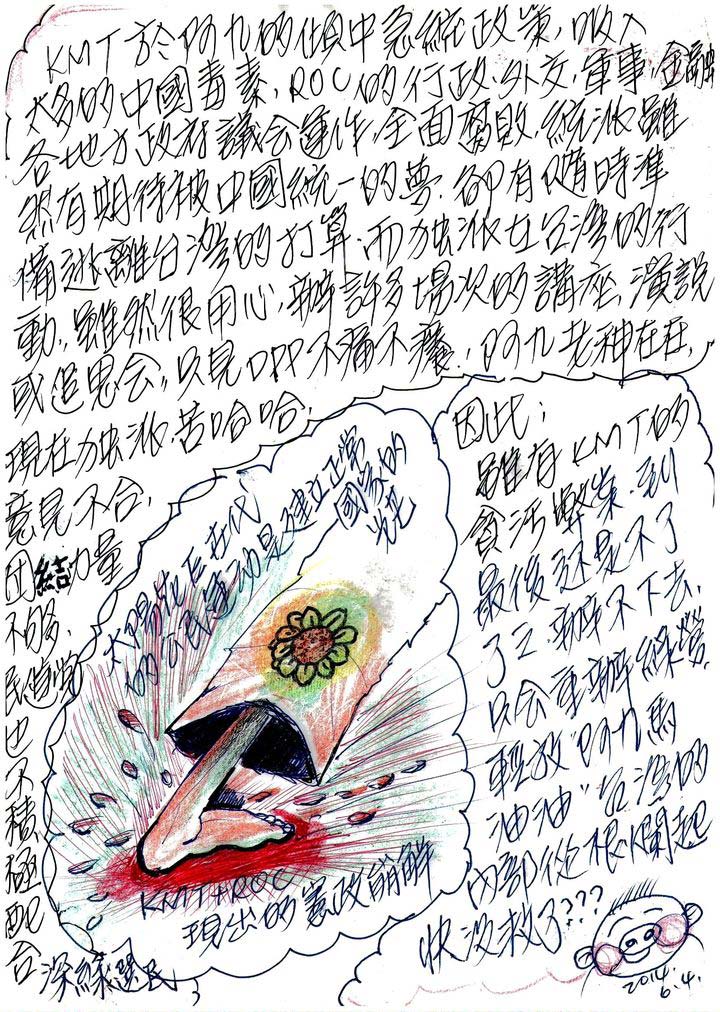 KMT於阿九的傾中急統政策,吸入
太多的中國毒素,ROC的行政、外交,軍事,金融
各地方政府議会運作,全面腐敗,統派雖
然有期待被中國統一的夢.卻有隨時準
備逃離台灣的打算.而独派在台灣的行
動,雖然很用心,辦許多場次的講座,演說
或追思会,,只見DPP不痛不癢.,阿九老神在在,
現在独派.苦哈哈,
意見不合,
团結力量
不夠,
民進党
也不積極配合
深綠選民,
太陽花后在代
的公民運動是建立正常
國家的
光芒
KMT+ROC
現出的憲政崩解
因此;
雖有KMT的
貪污弊案.到
最後还是不了
了之,辦不下去,
只会重辦綠營.
輕放"阿九馬
油油"台灣的
內部從根爛起
快沒救了???
2014.
6.4.